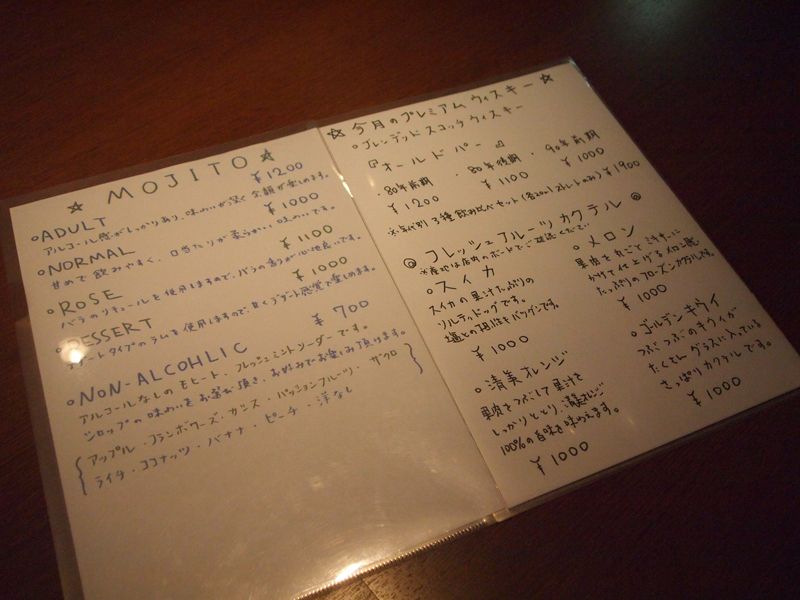 ☆ MOJITO ☆
○ADULT ¥1200
アルコール感がしっかりあり、味わいが深く余韻が楽しめます。
○NORMAL ¥1000
甘めで飲みやすく、口当たりが柔らかい味わいです。
○ROSE ¥1100
バラのリキュールを使用しますので、バラの香りが心地良いです。
○DESSERT ¥1000
デザートタイプのラムを使用しますので、良くデザート感覚で楽しめます。
○NON-ALCOHLIC ¥700
アルコールなしのモヒート、フレッシュミントソーダーです。
シロップの味わいをお選び頂き、お好みでお楽しみ頂けます。
アップル・フランボワーズ・カシス・パッションフルーツ・ザクロ
ライチ・ココナッツ・バナナ・ピーチ・洋なし
☆今月のプレミアムウィスキー☆
○ブレンデッドスコッチウィスキー
『オールドパー』
・80年前期 ・80年後期 ・90年前期
¥1200 ¥1100 ¥1000
※年代別3種飲み比べセット(各20mlストレートのみ)¥1900
◎フレッシュフルーツカクテル◎
※産地は店内のボードでご確認ください
○スイカ
スイカの果汁たっぷりの
ソルティドッグです。
塩との相性もバツグンです。
¥1000
○メロン
果肉を丸ごとミキサーに
かけて仕上げるメロン感
たっぷりのフローズンカクテルです。
¥1000
○清美オレンジ
果肉をつぶして果汁を
しっかりととり、清美オレンジ
100%の旨味を味わえます。
¥1000
○ゴールデンキウイ
つぶつぶのキウイが
たくさんグラスに入っている
さっぱりカクテルです。
¥1000